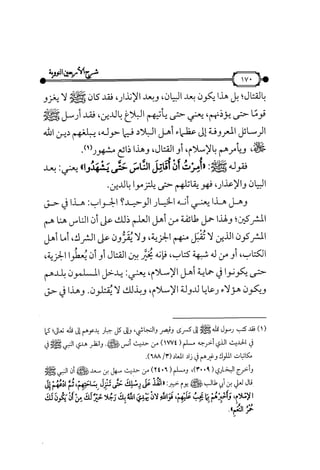 شرح الأربعين النووية
١٧٠
بالقتال؛ بل هذا يكون بعد البيان، وبعد الإنذار، فقد كان ﷺ لا يغزو
قومًا حتى يؤذنهم، يعني حتى يأتيهم البلاغ بالدين، فقد أرسل ﷺ
الرسائل المعروفة إلى عظماء أهل البلاد فيما حوله، يبلغهم دين الله
ﷻ، ويأمرهم بالإسلام، أو القتال، وهذا ذائع مشهور(١).
فقوله ﷺ: «أُمِرْتُ أَنْ أُقَاتِلَ النَّاسَ حَتَّى يَشْهَدُوا» يعني: بعد
البيان والإعذار، فهو يقاتلهم حتى يلتزموا بالدين.
وهل هذا يعني أنه الخيار الوحيد؟ الجواب: هذا في حق
المشركين؛ ولهذا حمل طائفة من أهل العلم ذلك على أن الناس هنا هم
المشركون الذين لا تُقْبَل منهم الجزية، ولا يُقَرُّون على الشرك، أما أهل
الكتاب، أو من له شبهة كتاب، فإنه يُخَيَّر بين القتال أو أن يُعطُوا الجزية،
حتى يكونوا في حماية أهل الإسلام، يعني: يدخل المسلمون بلدهم
ويكون هؤلاء رعايا لدولة الإسلام، وبذلك لا يُقتلون. وهذا في حق
(١) فقد كتب رسول الله ﷺ إلى كسرى وقيصر والنجاشي، وإلى كل جبار يدعوهم إلى الله تعالى؛ كما
في الحديث الذي أخرجه مسلم (١٧٧٤) من حديث أنس ﷺ. وانظر هدي النبي ﷺ في
مكاتبات الملوك وغيرهم في زاد المعاد (٣/ ٦٨٨).
وأخرج البخاري (٣٠٠٩)، ومسلم (٢٤٠٦) من حديث سهل بن سعد ﷺ أن النبي ﷺ
قال لعلي بن أبي طالب ﷺ يوم خيبر: «انْفُذْ عَلَى رِسْلِكَ حَتَّى تَنْزِلَ بِسَاحَتِهِمْ، ثُمَّ ادْعُهُمْ إِلَى
الإِسْلَامِ، وَأَخْبِرْهُمْ بِمَا يَجِبُ عَلَيْهِمْ، فَوَاللَّهِ لَأَنْ يَهْدِيَ اللَّهُ بِكَ رَجُلًا خَيْرٌ لَكَ مِنْ أَنْ يَكُونَ لَكَ
حُمْرُ النَّعَمِ».